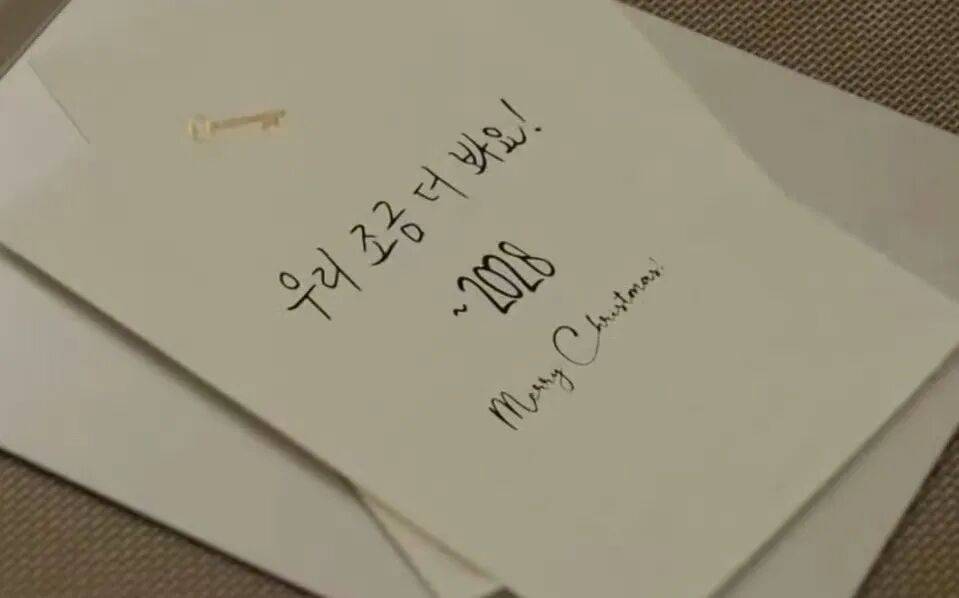 우리 조금 더 봐요!
~2028
Merry Christmas!